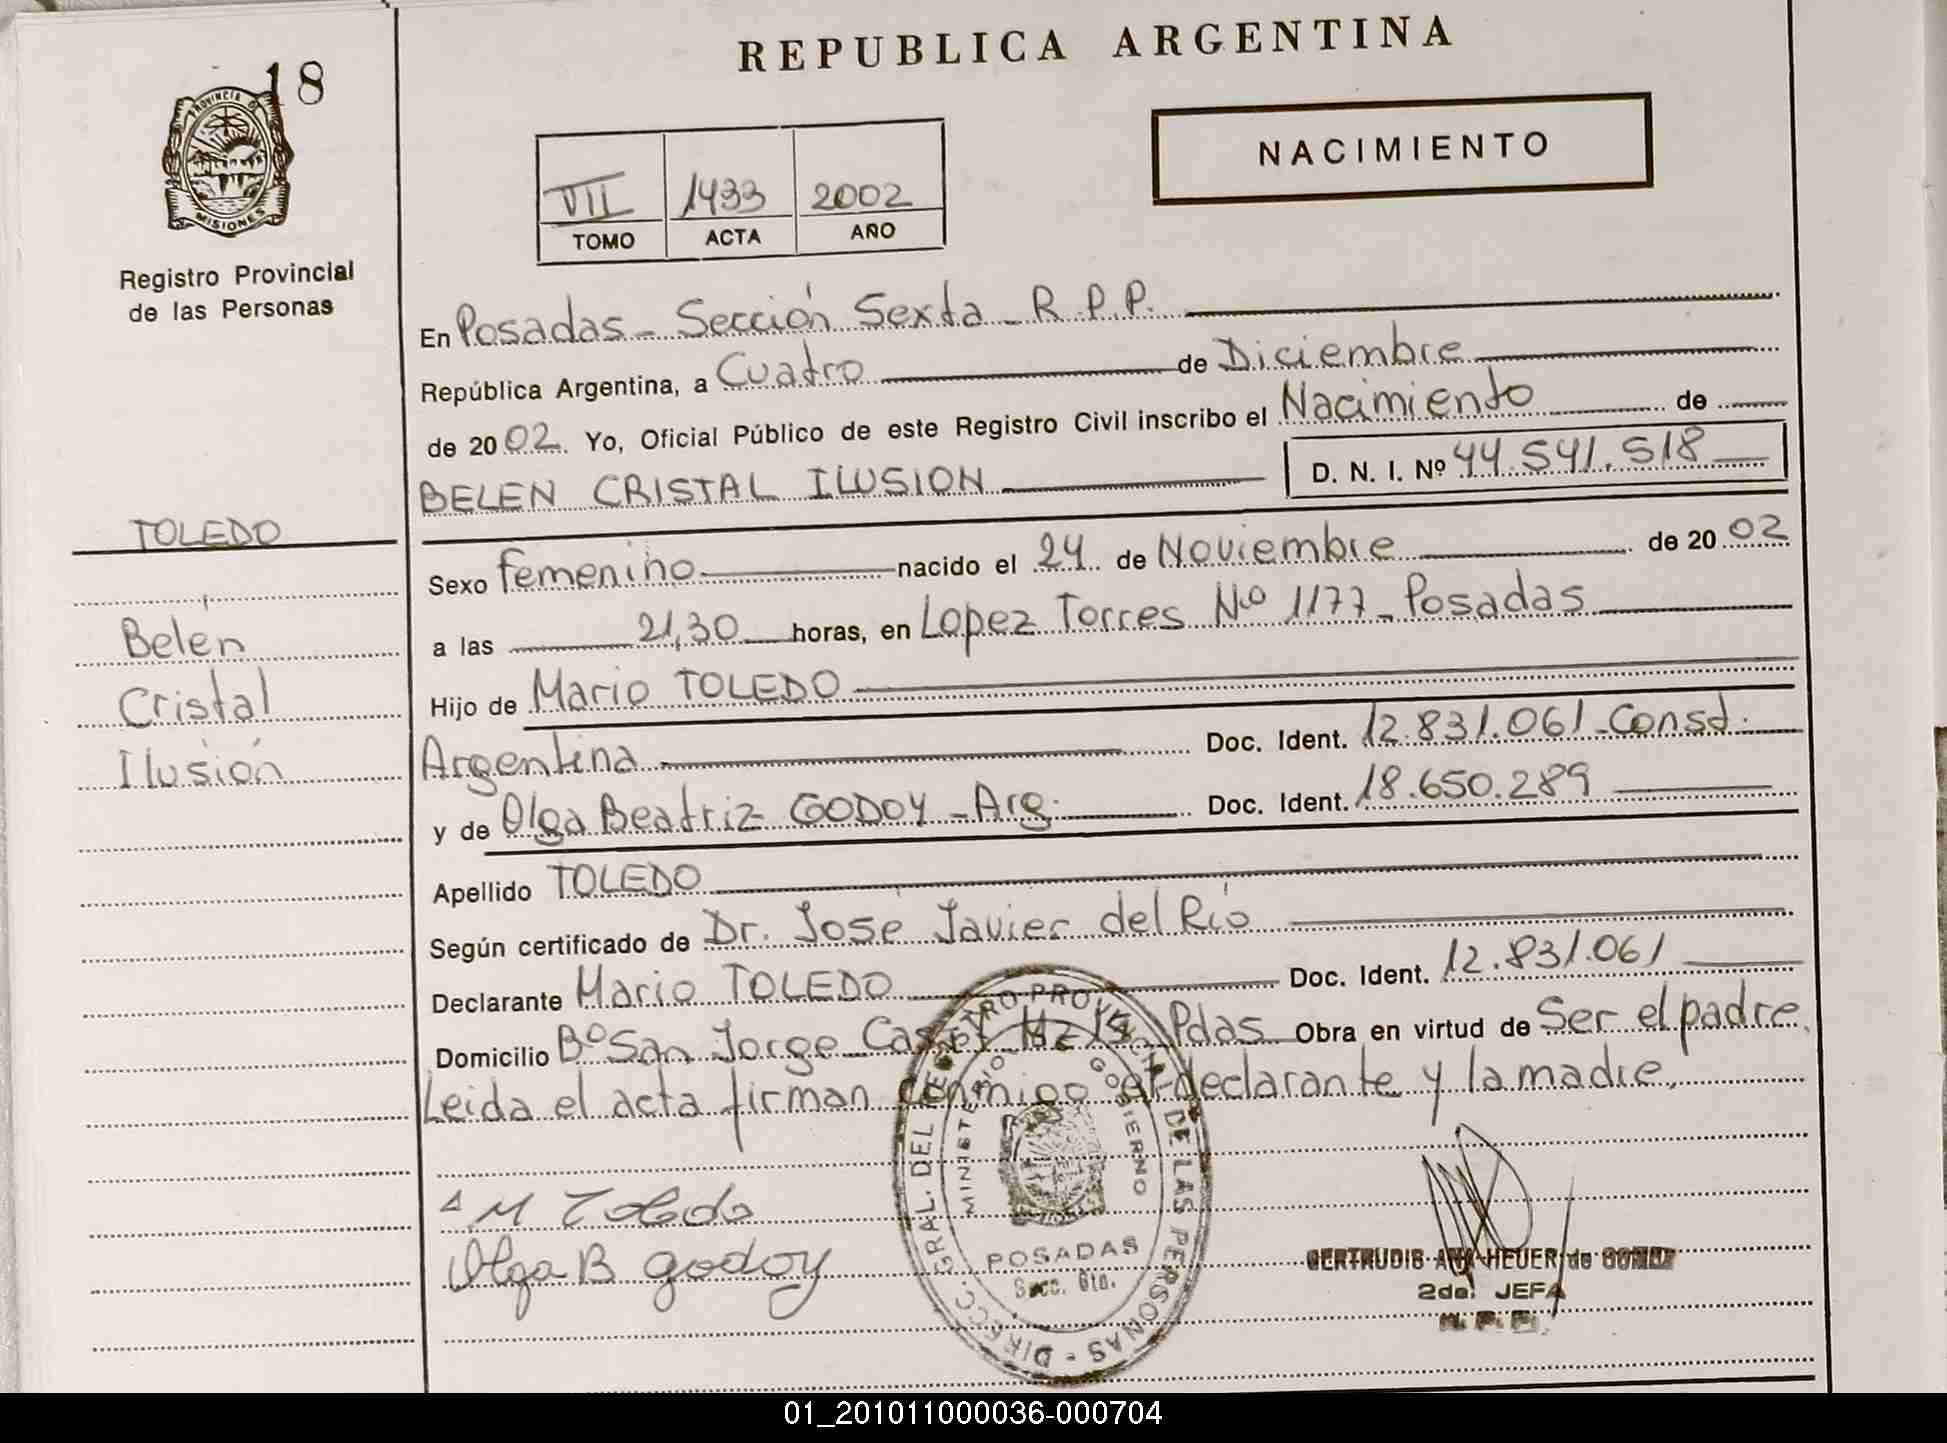 REPUBLICA ARGENTINA
18
PROVINCIA DE
MISIONES
Registro Provincial
de las Personas
NACIMIENTO
VII 1433 2002
TOMO ACTA AÑO
En Posadas - Sección Sexta - R.P.P.
República Argentina, a Cuatro de Diciembre
de 2002. Yo, Oficial Público de este Registro Civil inscribo el Nacimiento de
BELEN CRISTAL ILUSION D. N. I. Nº 44.541.518
TOLEDO
Belen
Cristal
Ilusión
Sexo femenino nacido el 24 de Noviembre de 2002
a las 21,30 horas, en Lopez Torres Nº 1177 - Posadas
Hijo de Mario TOLEDO
Argentina Doc. Ident. 12.831.061 - Const.
y de Olga Beatriz GODOY - Arg. Doc. Ident. 18.650.289
Apellido TOLEDO
Según certificado de Dr. José Javier del Río
Declarante Mario TOLEDO Doc. Ident. 12.831.061
Domicilio Bº San Jorge Mz Pdas Obra en virtud de Ser el padre.
Leida el acta firman conmigo el declarante y la madre.
M Toledo
Olga B godoy
DIRECC. GRAL. DEL REGISTRO PROVINCIAL DE LAS PERSONAS
MINISTERIO GOBIERNO
POSADAS
Secc. 6ta.
GERTRUDIS ANA HEUER de
2da. JEFA
01_201011000036-000704